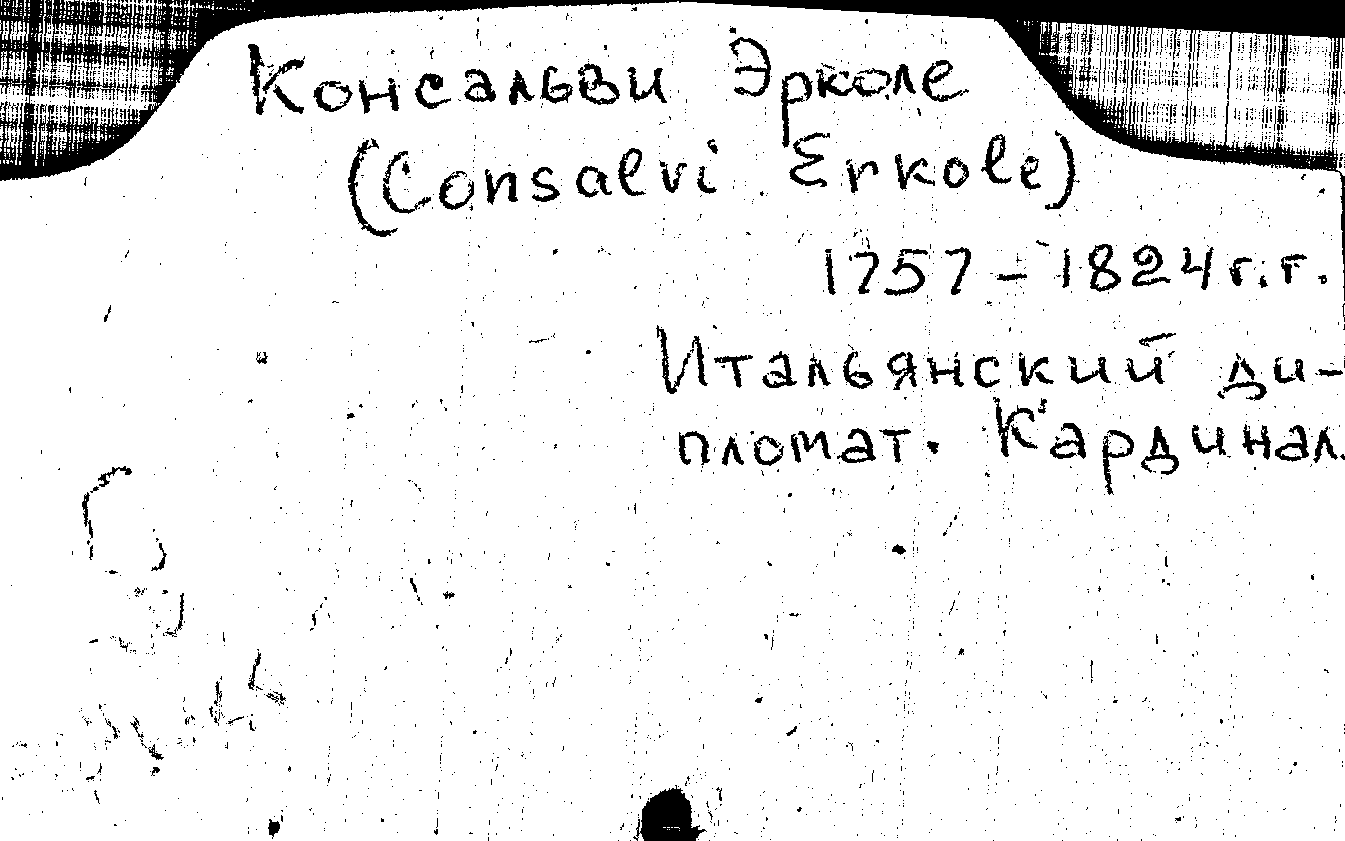 Консальви Эрколе
(Consalvi Erkole)
1757 – 1824 г.г.
Итальянский ди-
пломат. Кардинал.